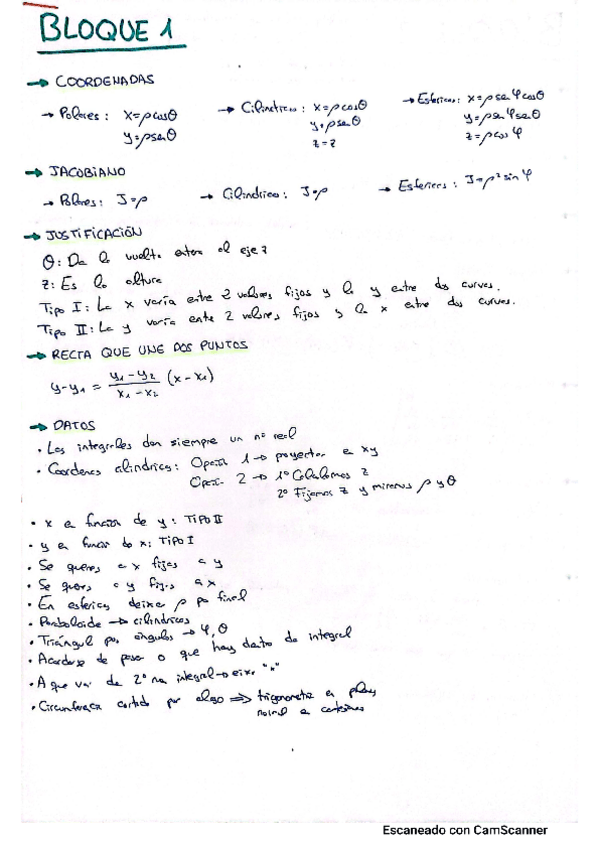 BLOQUE 1
→ COORDENADAS
→ Polares: x=ρcosθ
y=ρsenθ
→ Cilíndricas: x=ρcosθ
y=ρsenθ
z=z
→ Esféricas: x=ρsenφcosθ
y=ρsenφsenθ
z=ρcosφ
→ JACOBIANO
→ Polares: J=ρ
→ Cilíndricas: J=ρ
→ Esféricas: J=ρ²sinφ
→ JUSTIFICACIÓN
θ: Da la vuelta entorno al eje z
z: Es la altura
Tipo I: La x varía entre 2 valores fijos y la y entre dos curvas.
Tipo II: La y varía entre 2 valores fijos y la x entre dos curvas.
→ RECTA QUE UNE DOS PUNTOS
y-y₁ = (y₁-y₂)/(x₁-x₂) (x-x₁)
→ DATOS
· Las integrales dan siempre un nº real
· Coordenas cilíndricas: Opción 1→ proyectar a xy
Opción 2→ 1º Calculamos z
2º Fijamos z y miramos ρ y θ
· x en función de y: TIPO II
· y en función de x: TIPO I
· Se queres a x fijas a y
· Se queres a y fijas a x
· En esféricas deixar ρ pa final
· Paraboloide → cilíndricas
· Triángul por ángulos → φ, θ
· Acordarse de poser o que hay dentro da integral
· A que va de 2º na integral→ eixe "x"
· Circunferencia cortada por algo ⇒ trigonometría en
normal a cartesianas
Escaneado con CamScanner